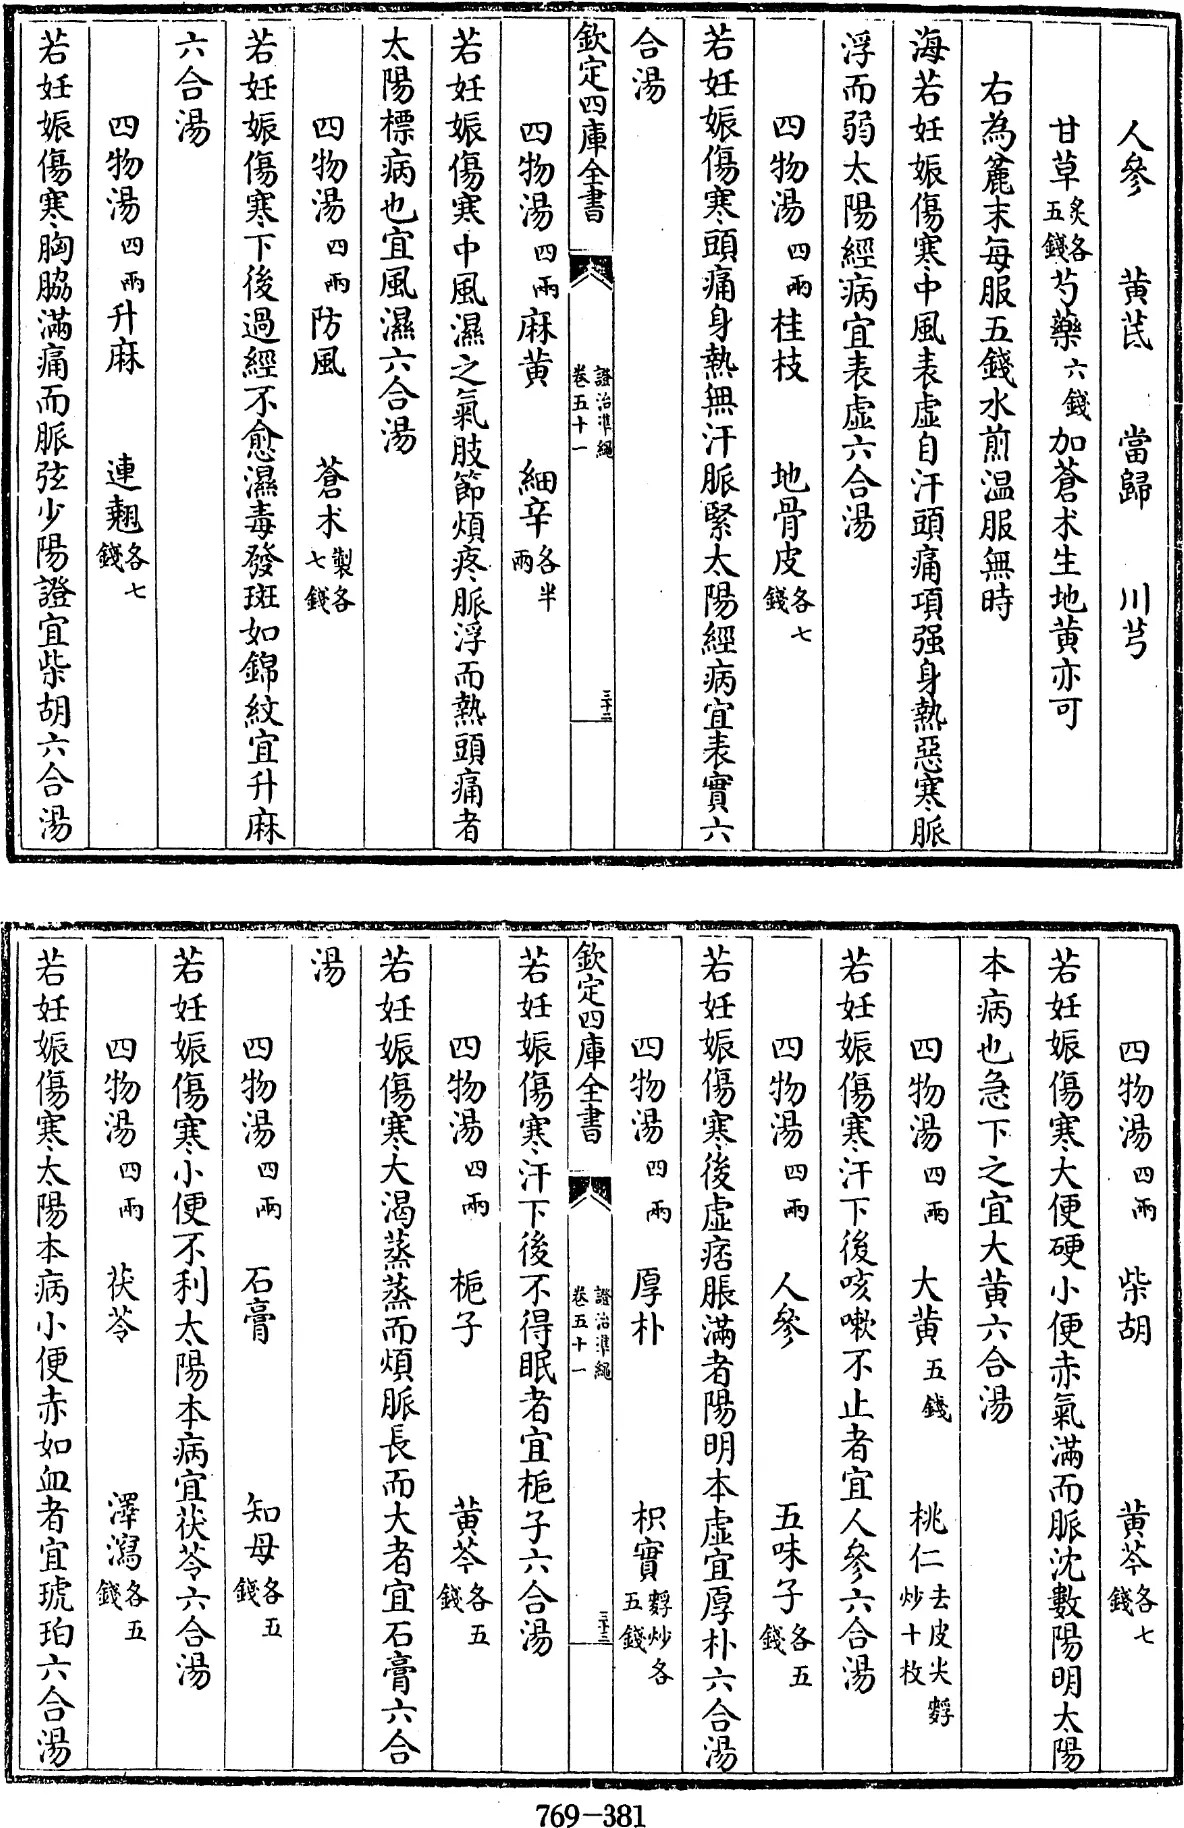 人參　黄芪　當歸　川芎
甘草炙各五錢芍藥六錢加蒼术生地黄亦可
右為麄末每服五錢水煎温服無時
海若妊娠傷寒中風表虛自汗頭痛項强身熱惡寒脈
浮而弱太陽經病宜表虛六合湯
四物湯四兩桂枝　地骨皮各七錢
若妊娠傷寒頭痛身熱無汗脈緊太陽經病宜表實六
合湯
欽定四庫全書　證治準繩卷五十一　三十二
四物湯四兩麻黄　細辛各半兩
若妊娠傷寒中風濕之氣肢節煩疼脈浮而熱頭痛者
太陽標病也宜風濕六合湯
四物湯四兩防風　蒼术製各七錢
若妊娠傷寒下後過經不愈濕毒發斑如錦紋宜升麻
六合湯
四物湯四兩升麻　連翹各七錢
若妊娠傷寒胸脇滿痛而脈弦少陽證宜柴胡六合湯
四物湯四兩　柴胡　黄芩各七錢
若妊娠傷寒大便硬小便赤氣滿而脈沈數陽明太陽
本病也急下之宜大黄六合湯
四物湯四兩　大黄五錢　桃仁去皮尖麩炒十枚
若妊娠傷寒汗下後咳嗽不止者宜人參六合湯
四物湯四兩　人參　五味子各五錢
若妊娠傷寒後虛痞脹滿者陽明本虛宜厚朴六合湯
四物湯四兩　厚朴　枳實麩炒各五錢
欽定四庫全書　證治準繩卷五十一　三十三
若妊娠傷寒汗下後不得眠者宜梔子六合湯
四物湯四兩　梔子　黄芩各五錢
若妊娠傷寒大渴蒸蒸而煩脈長而大者宜石膏六合
湯
四物湯四兩　石膏　知母各五錢
若妊娠傷寒小便不利太陽本病宜茯苓六合湯
四物湯四兩　茯苓　澤瀉各五錢
若妊娠傷寒太陽本病小便赤如血者宜琥珀六合湯
769-381